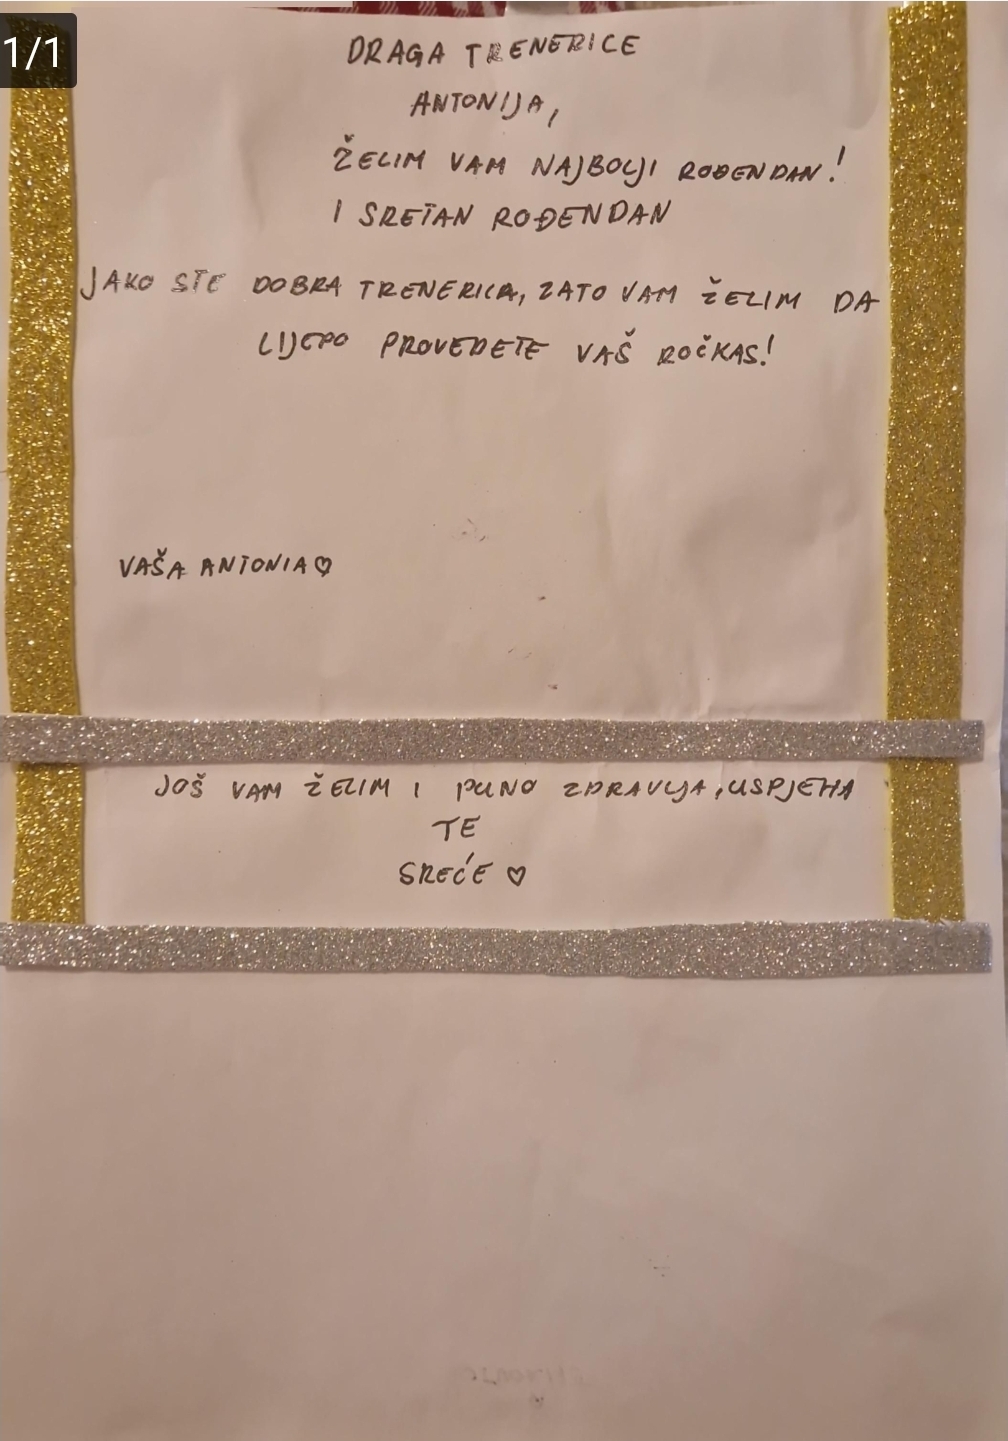 1/1
DRAGA TRENERICE
ANTONIJA,
ŽELIM VAM NAJBOLJI ROĐENDAN!
I SRETAN ROĐENDAN
JAKO STE DOBRA TRENERICA, ZATO VAM ŽELIM DA
LIJEPO PROVEDETE VAŠ ROČKAS!
VAŠA ANTONIA♡
JOŠ VAM ŽELIM I PUNO ZDRAVLJA, USPJEHA
TE
SREĆE ♡